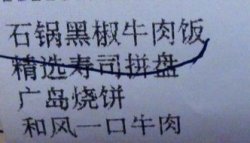 石锅黑椒牛肉饭
精选寿司拼盘
广岛烧饼
和风一口牛肉